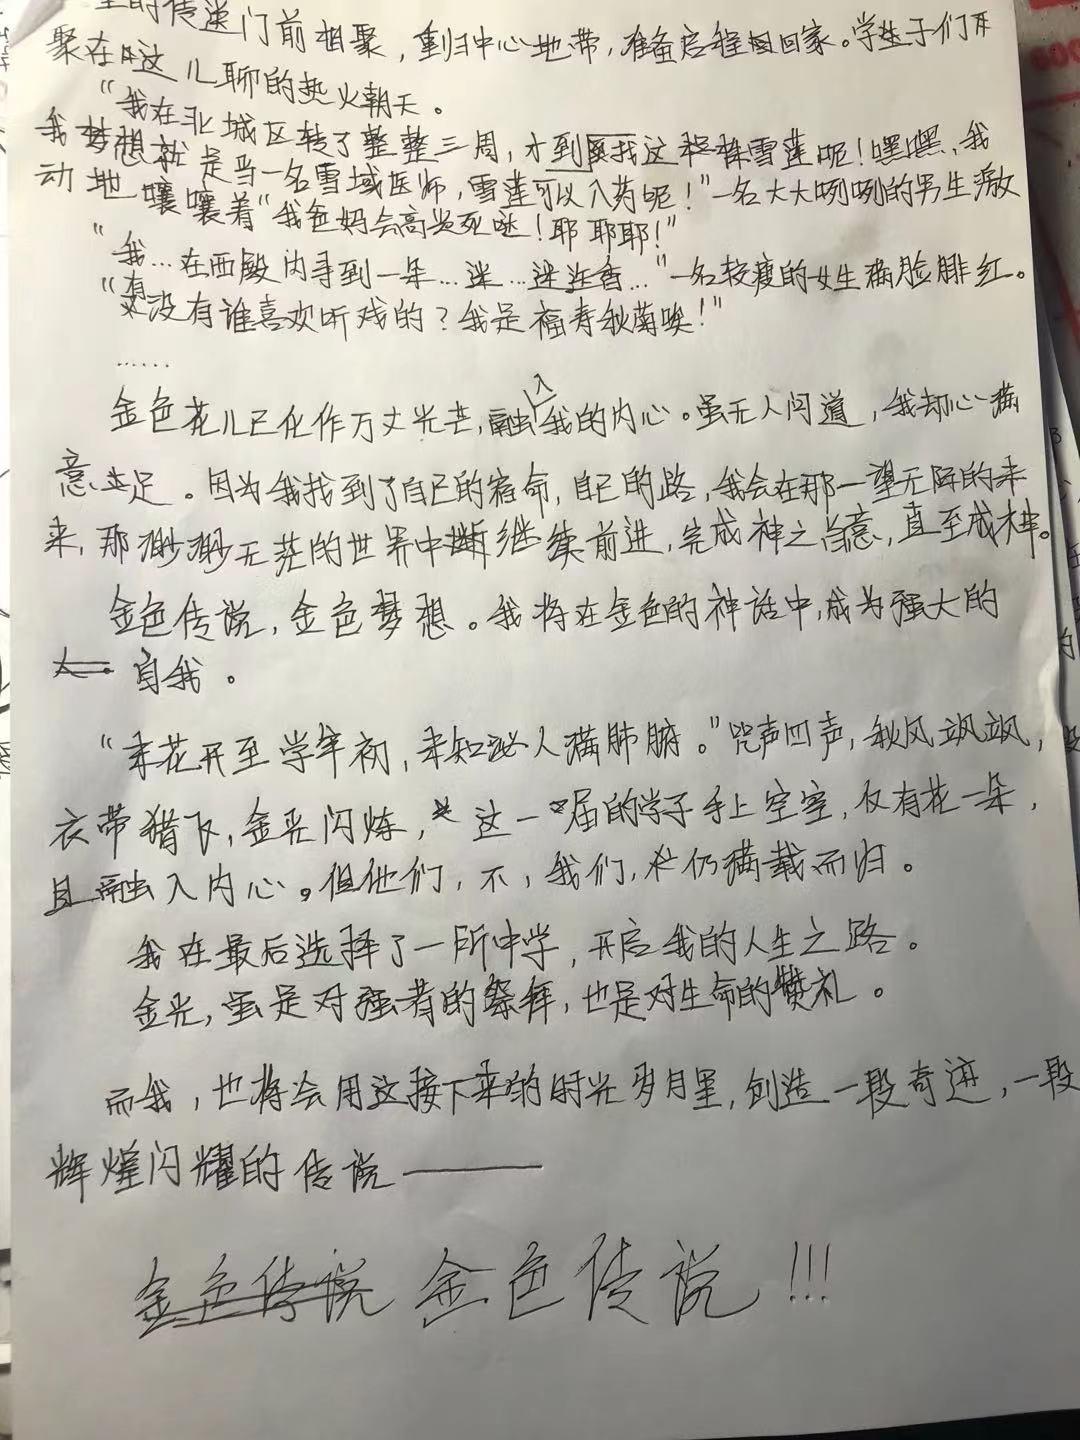 的传送门前相聚，重归中心地带，准备启程回家。学生子们
聚在这儿聊的热火朝天。
“我在北城区转了整整三周，才到找这株雪莲呢！嘿嘿，我
我梦想就是当一名雪域医师，雪莲可以入药呢！”一名大大咧咧的男生激
动地嚷嚷着“我爸妈会高兴死哒！耶耶耶！”
“我…在西殿内寻到一朵…迷…迷迭香…”一名较瘦的女生满脸腓红。
“有没有谁喜欢听戏的？我是福寿秋菊唉！”
……
金色花儿已化作万丈光芒，融入我的内心。虽无人问道，我却心满
意足。因为我找到了自己的宿命，自己的路，我会在那一望无际的未
来，那渺渺无茫的世界中继续前进，完成神之旨意，直至成神。
金色传说，金色梦想。我将在金色的神话中，成为强大的
自我。
“未花开至学年初，未知沁人满肺腑。”咒声四声，秋风飒飒，
衣带猎飞，金光闪烁，这一届的学子手上空空，仅有花一朵，
且融入内心。但他们，不，我们，仍满载而归。
我在最后选择了一所中学，开启我的人生之路。
金光，虽是对强者的祭拜，也是对生命的赞礼。
而我，也将会用这接下来的时光岁月里，创造一段奇迹，一段
辉煌闪耀的传说———
金色传说 金色传说!!!